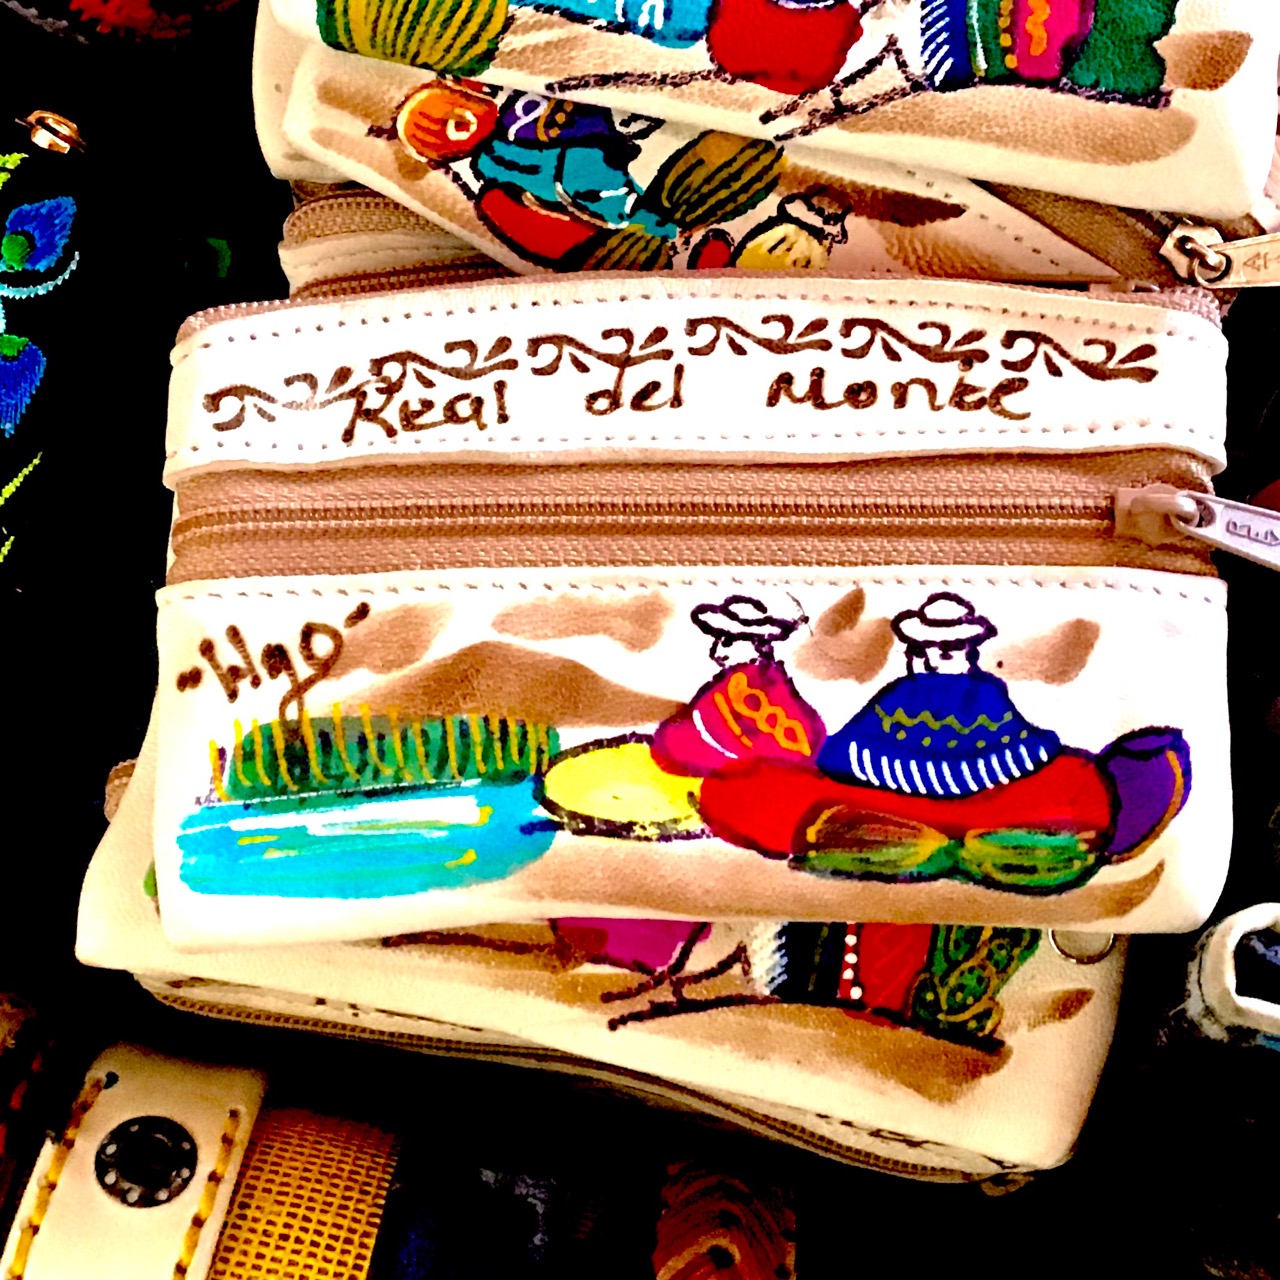 Real del Monte
"Hgo"